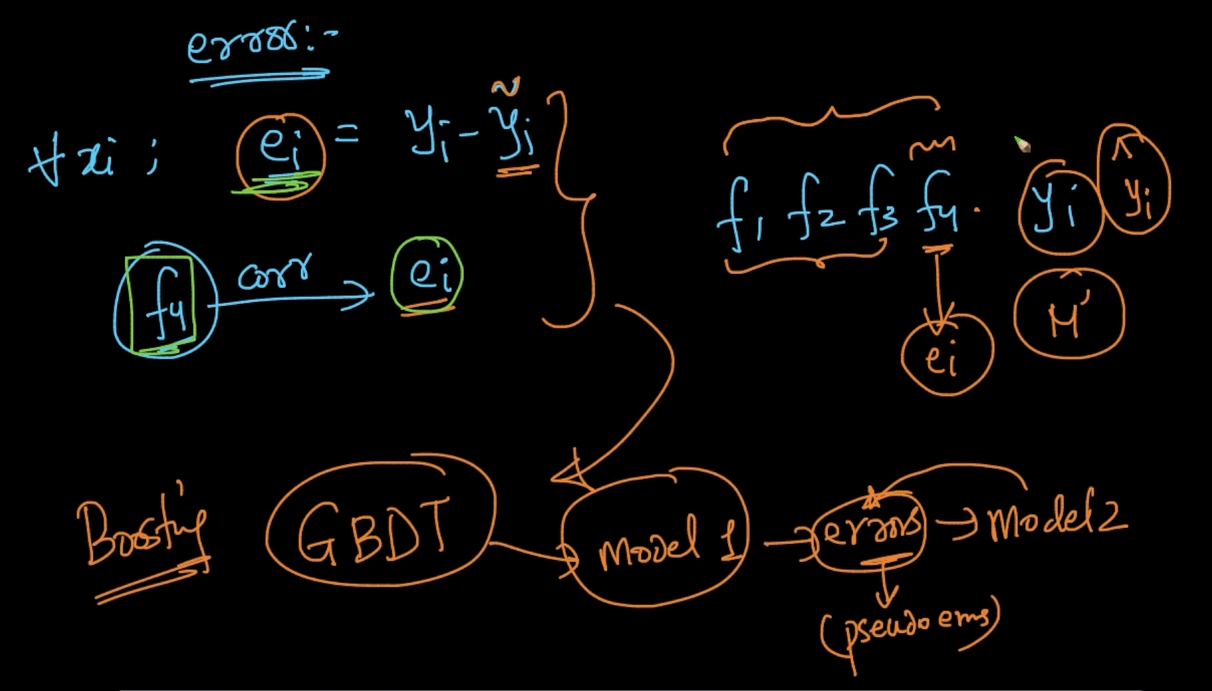 errors:-
∀ xi ; ei = yi - ỹi
f4 corr → ei
f1 f2 f3 f4 . yi ŷi
M'
ei
Boosting GBDT → Model 1 → errors → Model 2
(pseudo errors)